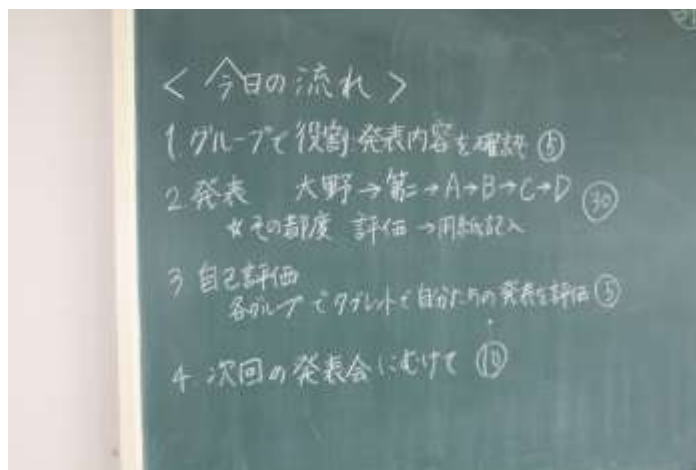 <今日の流れ>
1 グループで役割・発表内容を確認 ⑤
2 発表 大野→第二→A→B→C→D ㉚
※その都度 評価→用紙記入
3 自己評価
各グループでタブレットで自分たちの発表を評価 ⑤
4 次回の発表会にむけて ⑩